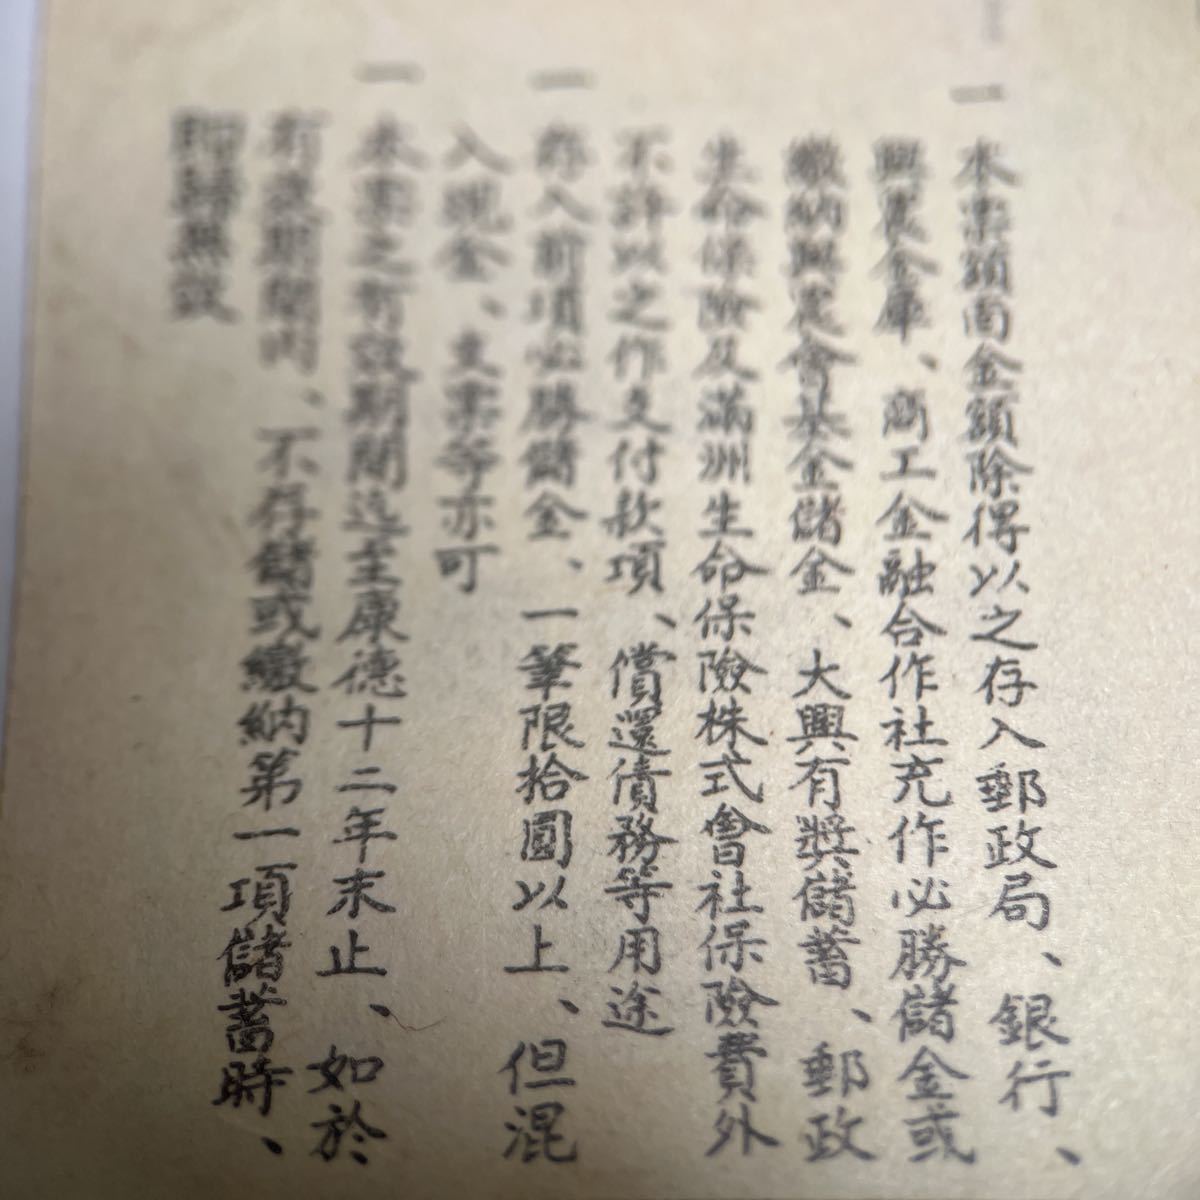 一 本票額面金額除得以之存入郵政局、銀行、
興農金庫、商工金融合作社充作必勝儲金或
繳納興農會基金儲金、大興有獎儲蓄、郵政
生命保險及滿洲生命保險株式會社保險費外
不許以之作支付款項、償還債務等用途
一 存入前項必勝儲金、一筆限拾圓以上、但混
入現金、支票等亦可
一 本票之有效期間迄至康德十二年末止、如於
有效期間內、不存儲或繳納第一項儲蓄時、
即歸無效